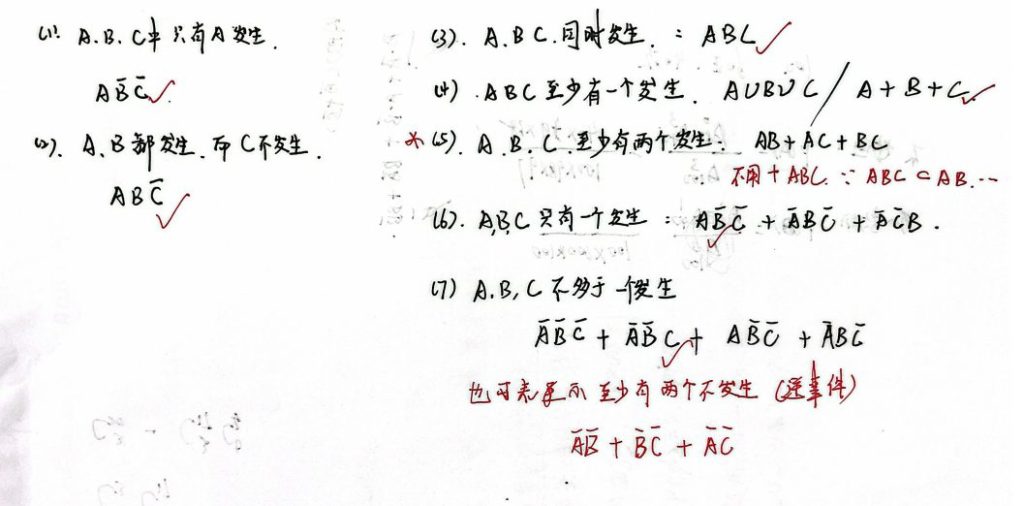 (1). A.B.C中只有A发生.
AB̄C̄
(2). A.B都发生.而C不发生.
ABC̄
(3). A.BC.同时发生.: ABC
(4).ABC至少有一个发生. A∪B∪C / A+B+C
*(5). A.B.C.至少有两个发生: AB+AC+BC
不用+ABC. ∵ ABC⊂AB.…
(6). A,B,C只有一个发生: AB̄C̄+ĀBC̄+ĀC̄B.
(7) A.B,C不多于一个发生
ĀB̄C̄+ĀB̄C+AB̄C̄+ĀBC̄
也可表示至少有两个不发生(逆事件)
ĀB̄+B̄C̄+ĀC̄